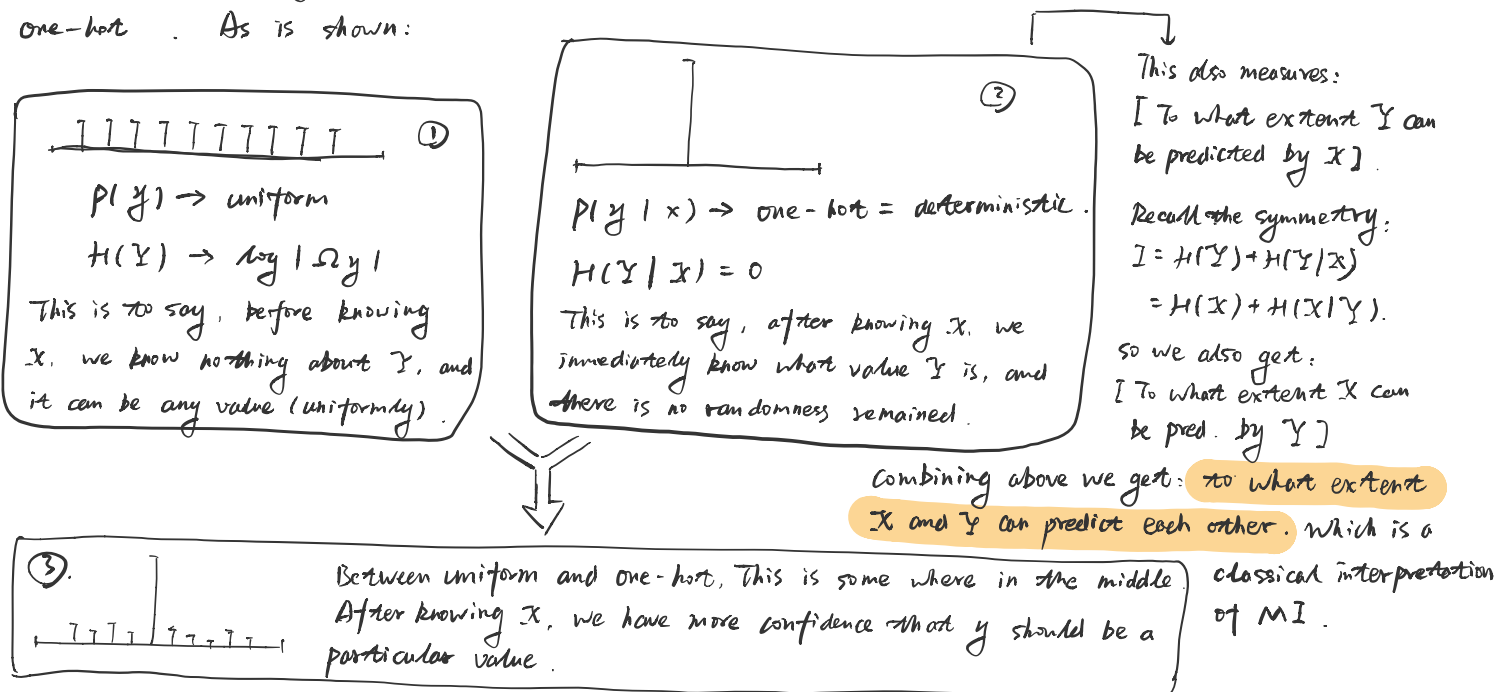 one-hot . As is shown:
①
P(y) → uniform
H(Y) → log |Ωy|
This is to say, berfore knowing
X, we know nothing about Y, and
it can be any value (uniformly).
②
P(y | x) → one-hot = deterministic.
H(Y | X) = 0
This is to say, after knowing X, we
immediately know what value Y is, and
there is no randomness remained.
This also measures:
[ To what extent Y can
be predicted by X ].
Recall the symmetry:
I = H(Y) + H(Y|X)
= H(X) + H(X|Y).
so we also get:
[ To what extent X can
be pred. by Y ]
Combining above we get: to what extent
X and Y can predict each other. Which is a
classical interpretation
of MI.
③.
Between uniform and one-hot, This is some where in the middle
After knowing X, we have more confidence that y should be a
particular value.